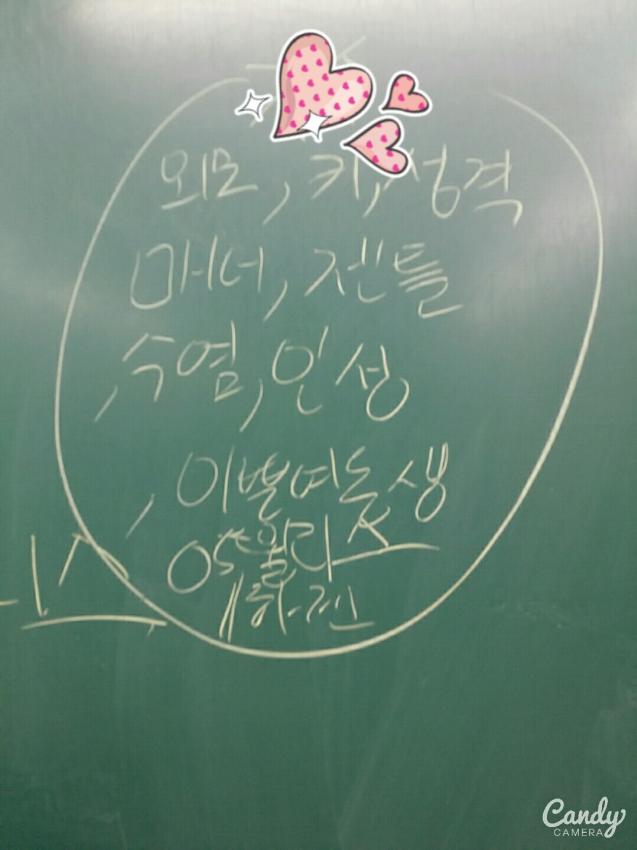 외모, 키, 성격
매너, 젠틀
, 수염, 인성
, 이쁜여동생
Candy
CAMERA